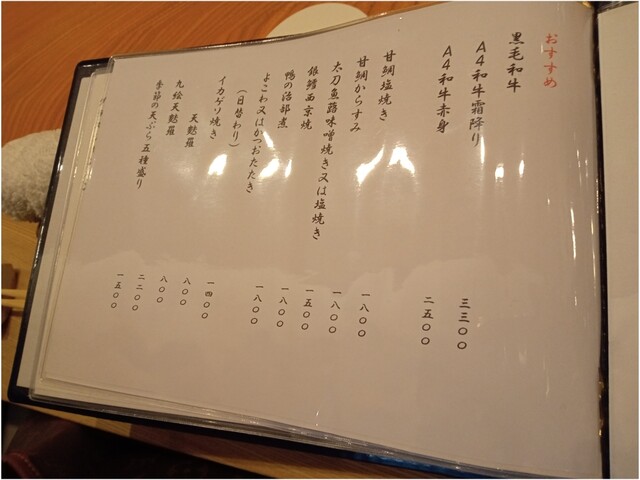 おすすめ
黒毛和牛
A4和牛霜降り 三三〇〇
A4和牛赤身 二五〇〇
甘鯛塩焼き 一八〇〇
甘鯛からすみ 一八〇〇
太刀魚蕗味噌焼き又は塩焼き 一五〇〇
銀鱈西京焼 一八〇〇
鴨の治部煮 一八〇〇
よこわ又はかつおたたき
(日替わり) 一四〇〇
イカゲソ焼き 八〇〇
天麩羅 八〇〇
九絵天麩羅 二二〇〇
季節の天ぷら五種盛り 一五〇〇